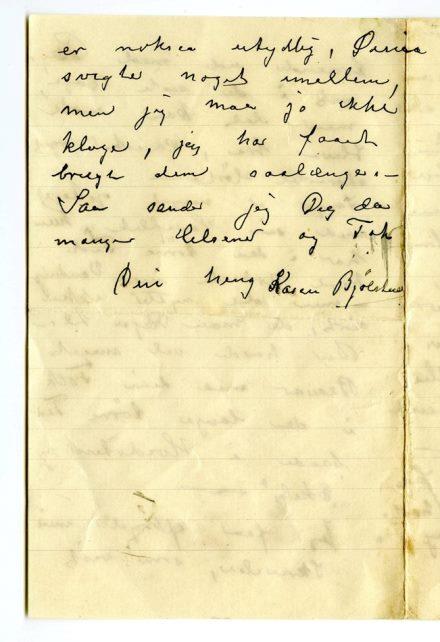 er noksaa utydlig, Öinene
svigte noget imellem,
men jeg maa jo ikke
klage, jeg har faaet
brugt dem saalænge.-
Saa sender jeg Dig da
mange Helsener og Tak
Din heng Karen Bjølstad